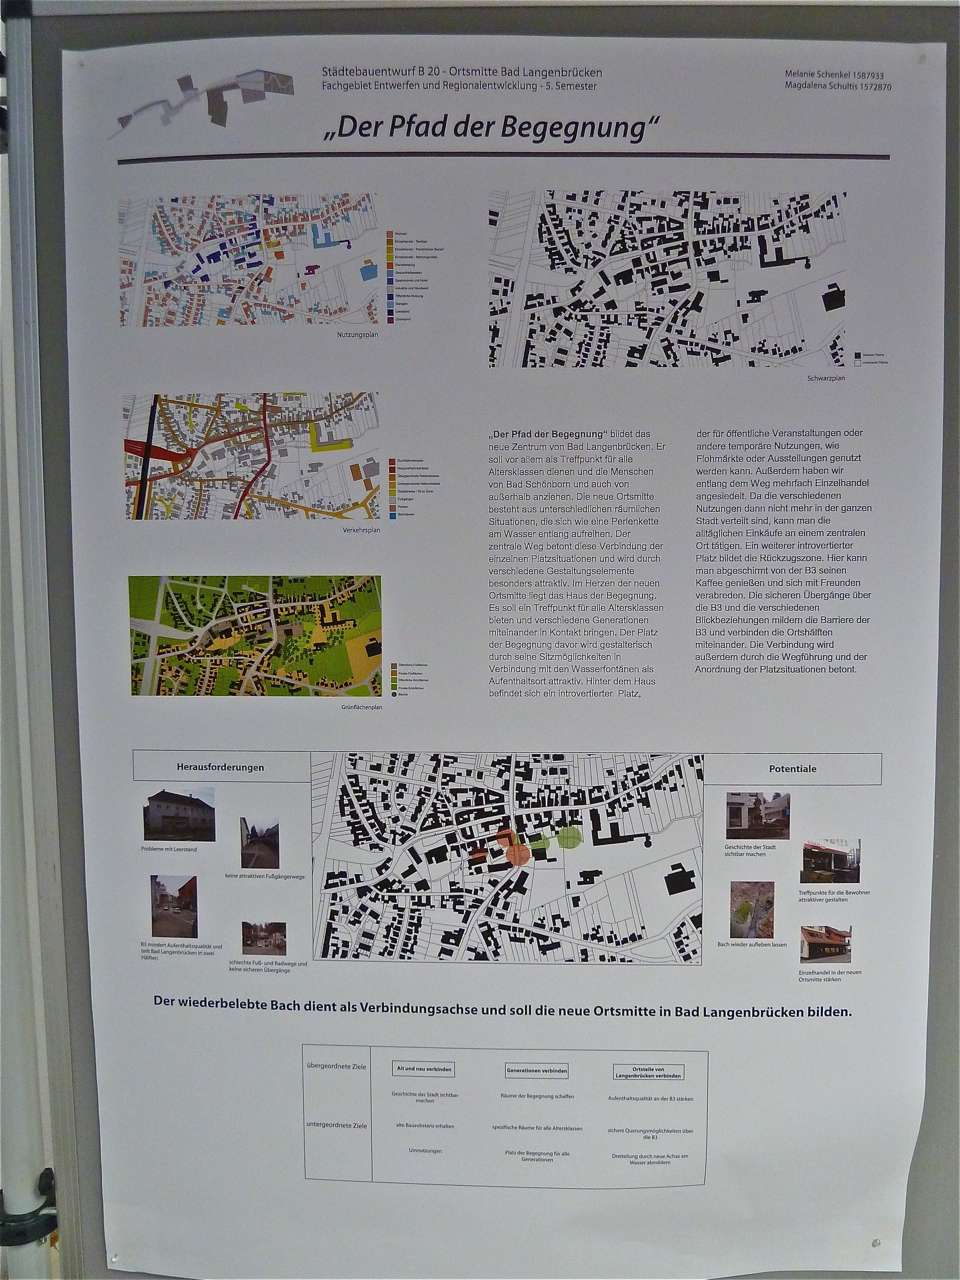 Städtebauentwurf B 20 - Ortsmitte Bad Langenbrücken
Fachgebiet Entwerfen und Regionalentwicklung - 5. Semester
Melanie Schenkel 1587933
Magdalena Schultis 1572870
„Der Pfad der Begegnung“
Nutzungsplan
Schwarzplan
Verkehrsplan
Grünflächenplan
„Der Pfad der Begegnung“ bildet das
neue Zentrum von Bad Langenbrücken. Er
soll vor allem als Treffpunkt für alle
Altersklassen dienen und die Menschen
von Bad Schönborn und auch von
außerhalb anziehen. Die neue Ortsmitte
besteht aus unterschiedlichen räumlichen
Situationen, die sich wie eine Perlenkette
am Wasser entlang aufreihen. Der
zentrale Weg betont diese Verbindung der
einzelnen Platzsituationen und wird durch
verschiedene Gestaltungselemente
besonders attraktiv. Im Herzen der neuen
Ortsmitte liegt das Haus der Begegnung.
Es soll ein Treffpunkt für alle Altersklassen
bieten und verschiedene Generationen
miteinander in Kontakt bringen. Der Platz
der Begegnung davor wird gestalterisch
durch seine Sitzmöglichkeiten in
Verbindung mit den Wasserfontänen als
Aufenthaltsort attraktiv. Hinter dem Haus
befindet sich ein introvertierter Platz,
der für öffentliche Veranstaltungen oder
andere temporäre Nutzungen, wie
Flohmärkte oder Ausstellungen genutzt
werden kann. Außerdem haben wir
entlang dem Weg mehrfach Einzelhandel
angesiedelt. Da die verschiedenen
Nutzungen dann nicht mehr in der ganzen
Stadt verteilt sind, kann man die
alltäglichen Einkäufe an einem zentralen
Ort tätigen. Ein weiterer introvertierter
Platz bildet die Rückzugszone. Hier kann
man abgeschirmt von der B3 seinen
Kaffee genießen und sich mit Freunden
verabreden. Die sicheren Übergänge über
die B3 und die verschiedenen
Blickbeziehungen mildern die Barriere der
B3 und verbinden die Ortshälften
miteinander. Die Verbindung wird
außerdem durch die Wegführung und der
Anordnung der Platzsituationen betont.
Herausforderungen
Probleme mit Leerstand
keine attraktiven Fußgängerwege
B3 mindert Aufenthaltsqualität und
teilt Bad Langenbrücken in zwei
Hälften
schlechte Fuß- und Radwege und
keine sicheren Übergänge
Potentiale
Geschichte der Stadt
sichtbar machen
Treffpunkte für die Bewohner
attraktiver gestalten
Bach wieder aufleben lassen
Einzelhandel in der neuen
Ortsmitte stärken
Der wiederbelebte Bach dient als Verbindungsachse und soll die neue Ortsmitte in Bad Langenbrücken bilden.
übergeordnete Ziele
Alt und neu verbinden
Generationen verbinden
Ortsteile von
Langenbrücken verbinden
Geschichte der Stadt sichtbar
machen
Räume der Begegnung schaffen
Aufenthaltsqualität an der B3 stärken
untergeordnete Ziele
alte Bausubstanz erhalten
spezifische Räume für alle Altersklassen
sichere Querungsmöglichkeiten über
die B3
Umnutzungen
Platz der Begegnung für alle
Generationen
Dreiteilung durch neue Achse am
Wasser abmildern